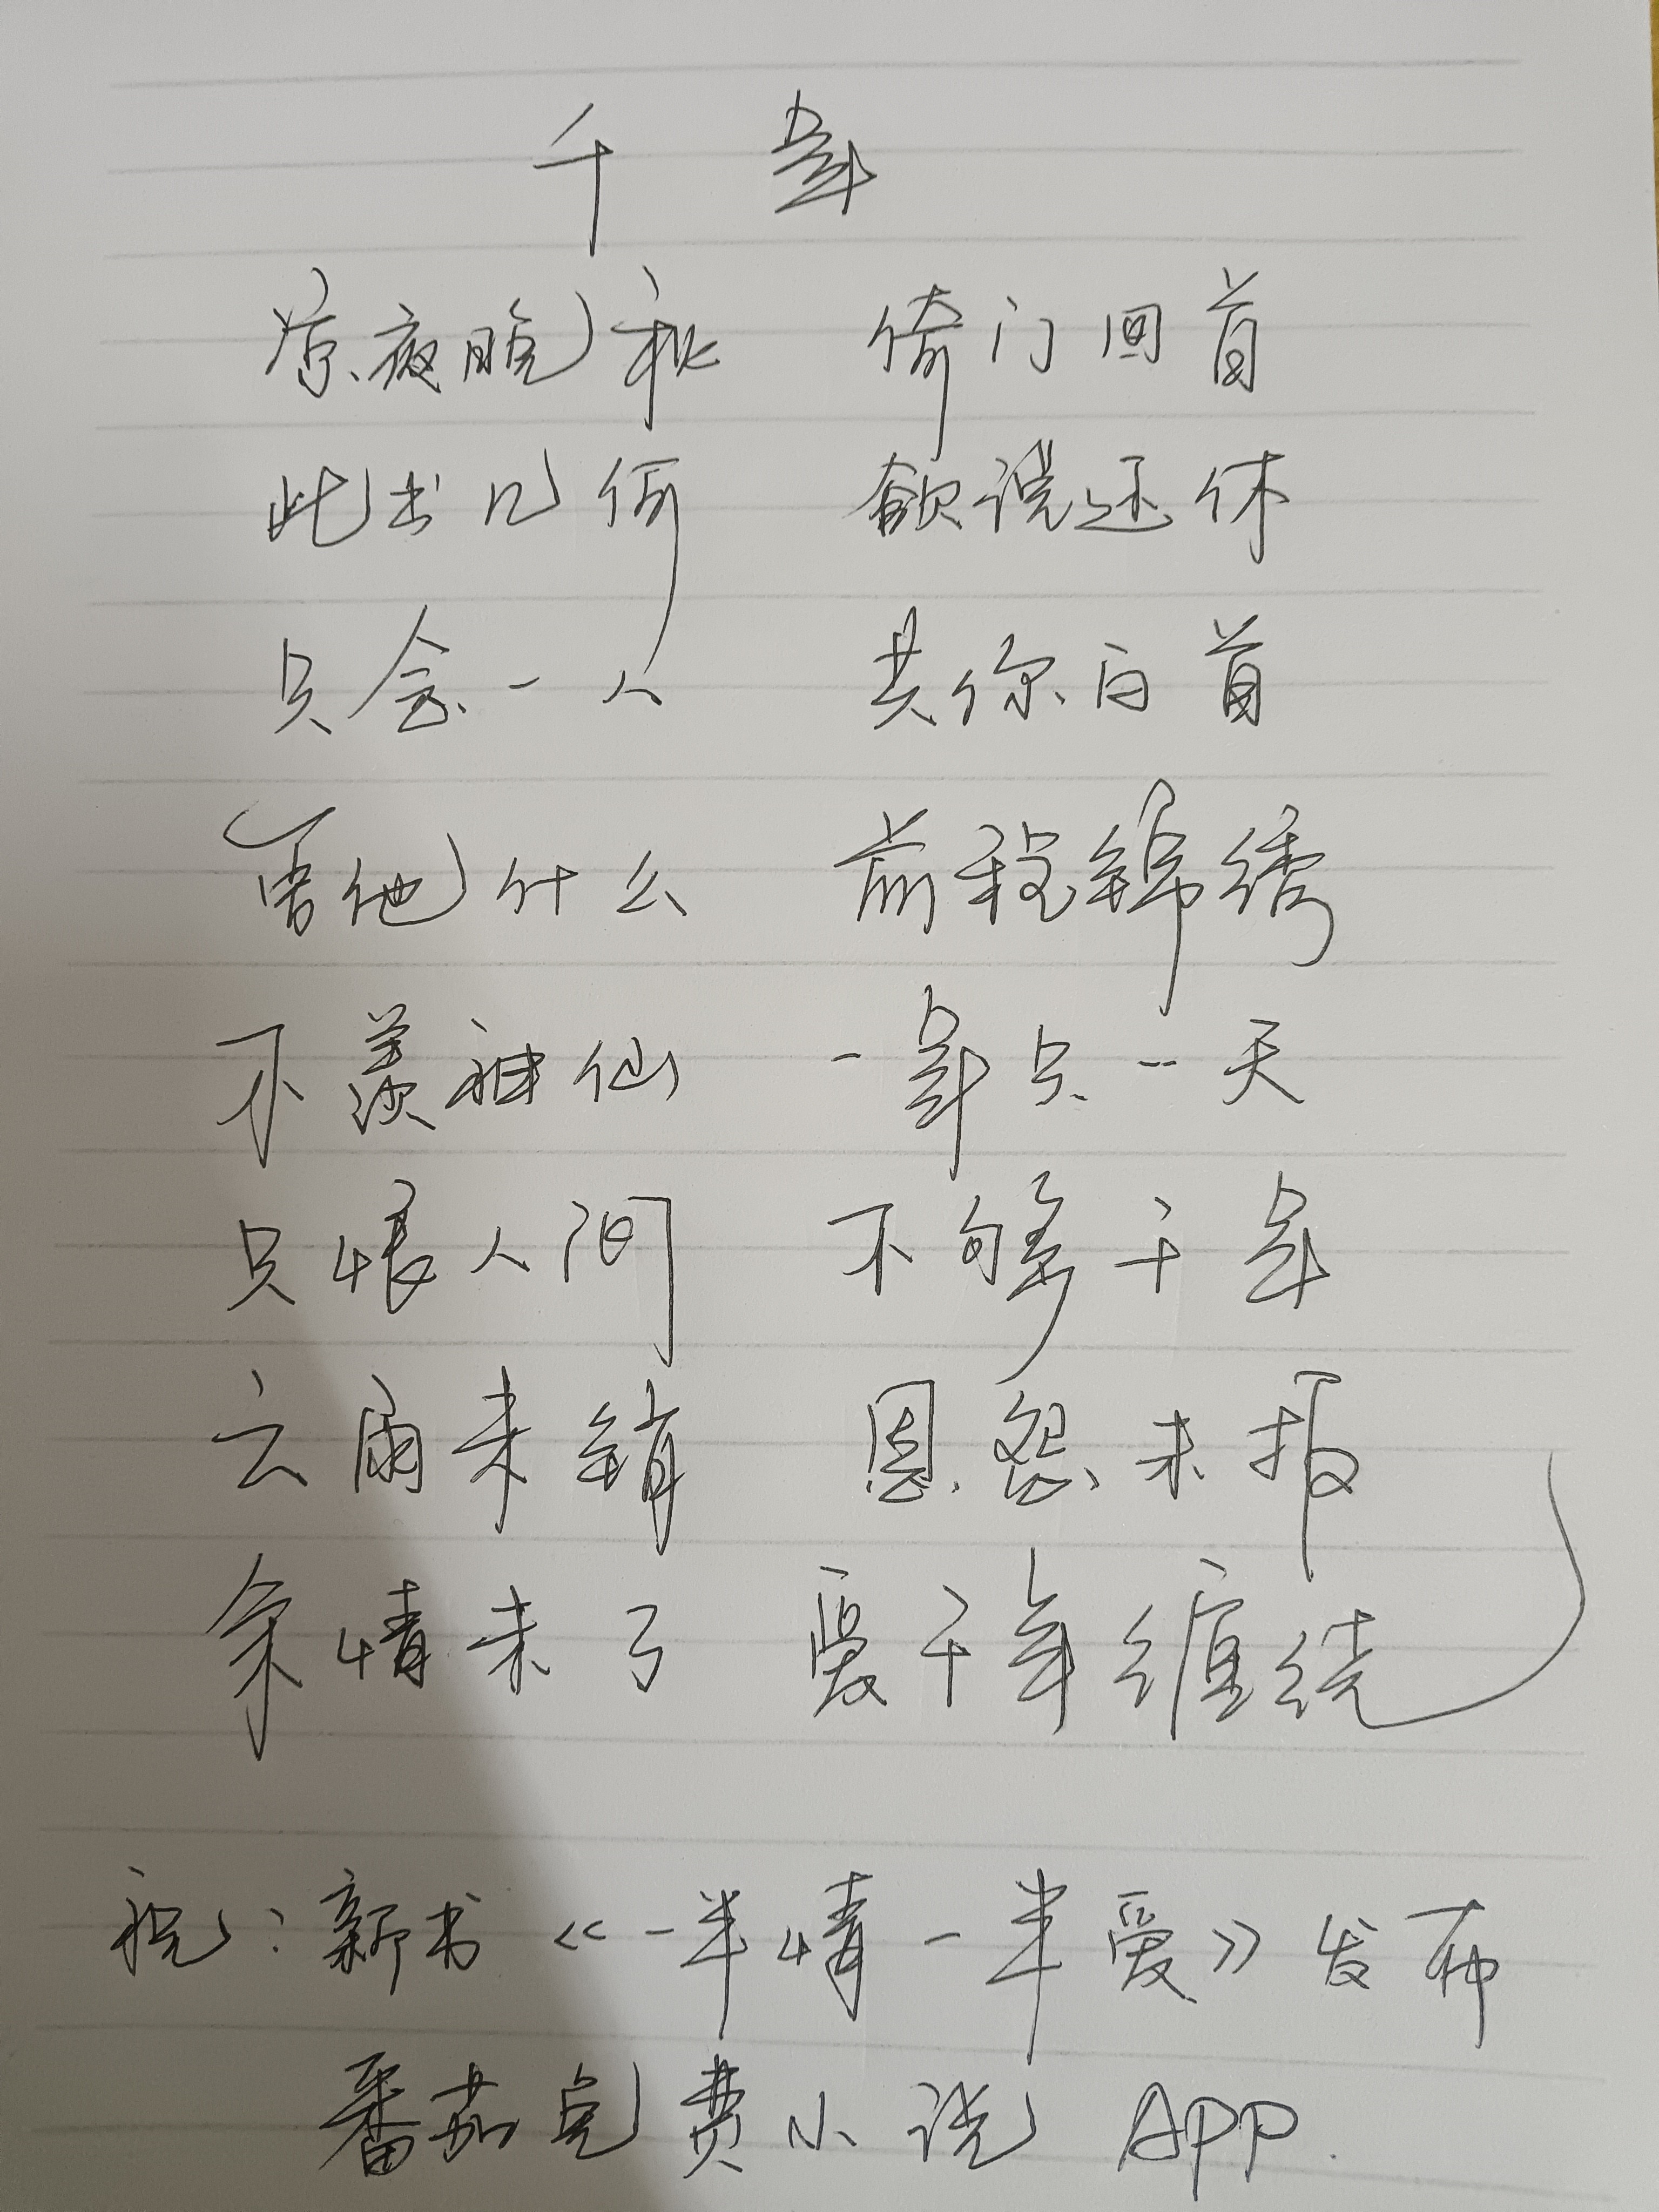 千年
凉夜晚秋 倚门回首
此书几何 欲说还休
只念一人 共你白首
害他什么 前程锦绣
不羡神仙 一年只一天
只恨人间 不够千年
云雨未销 恩怨未报
余情未了 爱千年缠绕
祝:新书《一半情一半爱》发布
番茄免费小说 APP.